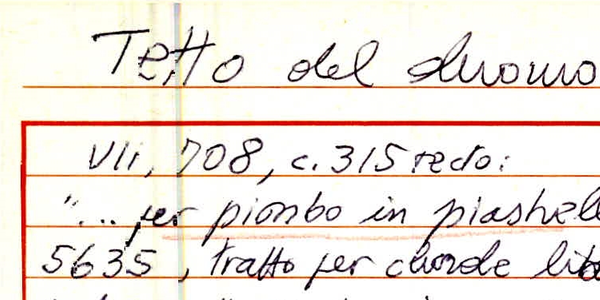 Tetto del duomo
VII, 708, c. 315 recto:
"... per piombo in piastrell
5635, tratto per churde lib